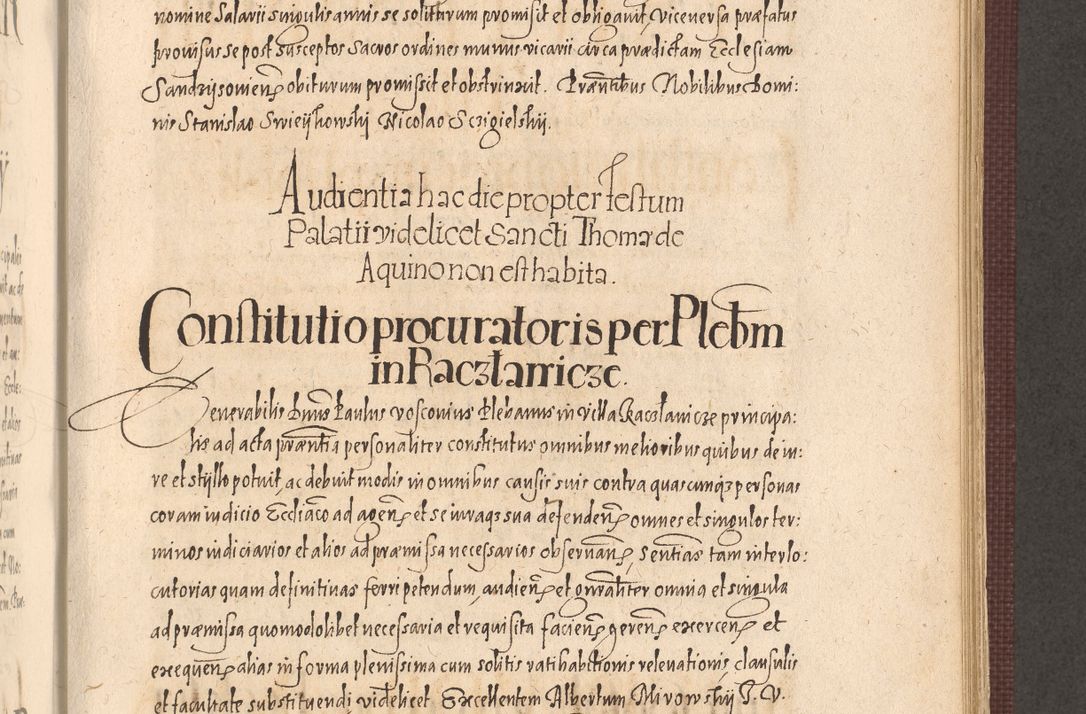 nomine Salarii singulis annis se soliturum promisit et obligavit, viceversa præfatus
provisus se post susceptos sacros ordines munus vicarii circa prædictam Ecclesiam
Sandrijsonien obiturum promissit et obstrinxit. Præntibus Nobilibus Domi:
nis Stanislao Swieijkowskij Nicolao Sczigielskij.
Audientia hac die propter Festum
Palatii videlicet Sancti Thomæ de
Aquino non est habita.
Constitutio procuratoris per Plebm
in Raczławicze.
Venerabilis Dnus Paulus Vosconius Plebanus in villa Raczławicze principa:
lis ad acta præntia personaliter constitutus omnibus melioribus quibus de iu:
re et styllo potuit, ac debuit modis in omnibus causis suis contra quascunqz personas
coram iudicio Ecclliaco ad agen et se iuraqz sua defenden omnes et singulos ter:
minos iudiciarios et alios ad præmissa necessarios observan, sentias tam interlo:
cutorias quam definitivas ferri petendum, audien et gnraliter omnia et singula
ad præmissa quomodolibet necessaria et requisita facien, geren exercen et
exequen alias in forma plenissima cum solitis ratihabitionis relevationis clausulis
et facultate substituendi videlicet Excellentem Albertum Mirowskij I. V.